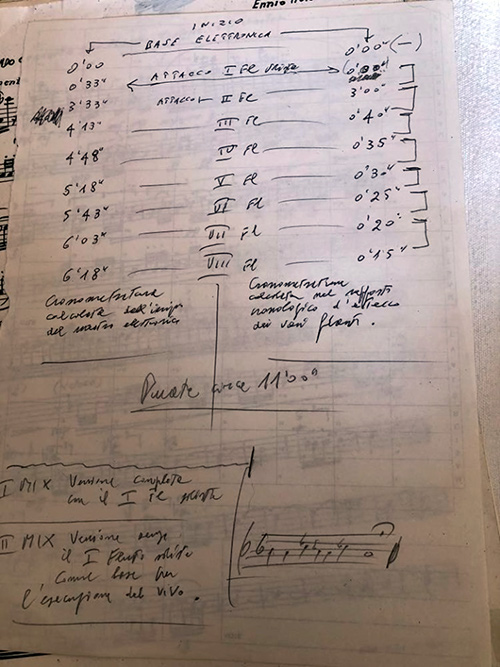 Ennio
INIZIO
BASE ELETTRONICA
0'00" 0'00" (—)
0'33" ATTACCO I Fl solista
3'33" ATTACCO II Fl 3'00"
4'13" III Fl 0'40"
4'48" IV Fl 0'35"
5'18" V Fl 0'30"
5'43" VI Fl 0'25"
6'03" VII Fl 0'20"
6'18" VIII Fl 0'15"
Cronometratura
calcolata dall'inizio
del nastro elettronico
Cronometratura
calcolata nel rapporto
cronologico d'attacco
dei vari flauti.
Durata circa 11'00"
I MIX Versione completa
con il I Fl solista
II MIX Versione senza
il I Flauto solista
come base per
l'esecuzione dal vivo.